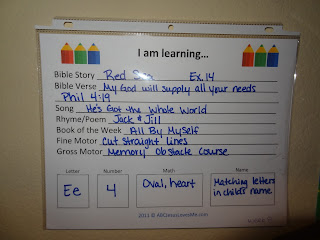 I am learning...
Bible Story Red Sea Ex. 14
Bible Verse My God will supply all your needs
Phil 4:19
Song He's Got the Whole World
Rhyme/Poem Jack & Jill
Book of the Week All By Myself
Fine Motor Cut Straight Lines
Gross Motor Memory Obstacle Course
Letter Number Math Name
Ee 4 Oval, heart Matching letters
in child's name
2011 ©